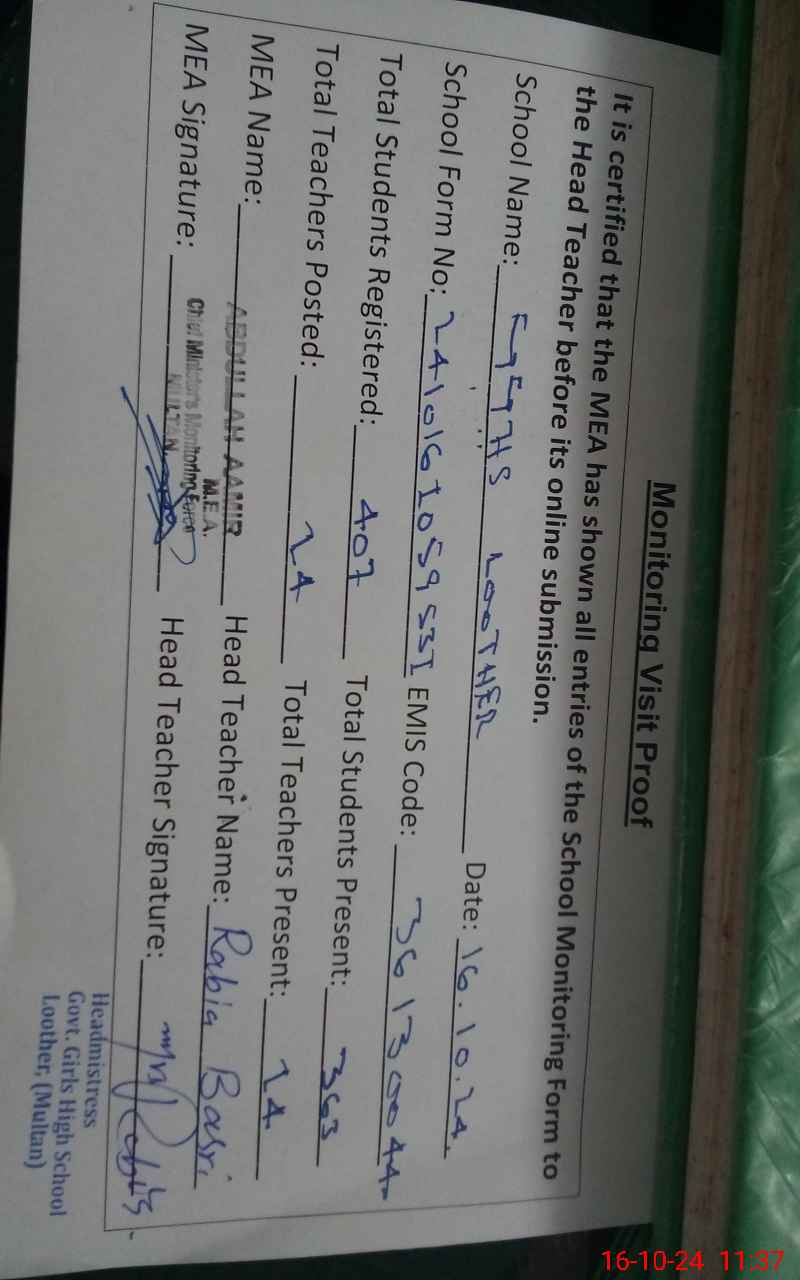 Monitoring Visit Proof
It is certified that the MEA has shown all entries of the School Monitoring Form to
the Head Teacher before its online submission.
School Name: LOOTHER Date: 16.10.24.
School Form No: 2410161059531 EMIS Code: 36130044
Total Students Registered: 407 Total Students Present: 363
Total Teachers Posted: 24 Total Teachers Present: 24
MEA Name: ABDULLAH AAMIR Head Teacher Name: Rabia Basri
M.E.A.
Chief Minister's Monitoring Force
MULTAN
MEA Signature: Head Teacher Signature:
Headmistress
Govt. Girls High School
Loother, (Multan)
16-10-24 11:37